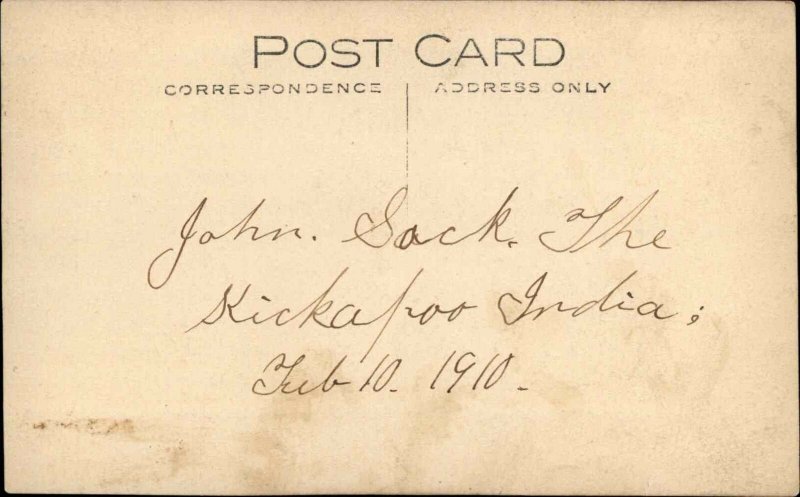 POST CARD
CORRESPONDENCE ADDRESS ONLY
John. Sack. The
Kickapoo India;
Feb 10. 1910.